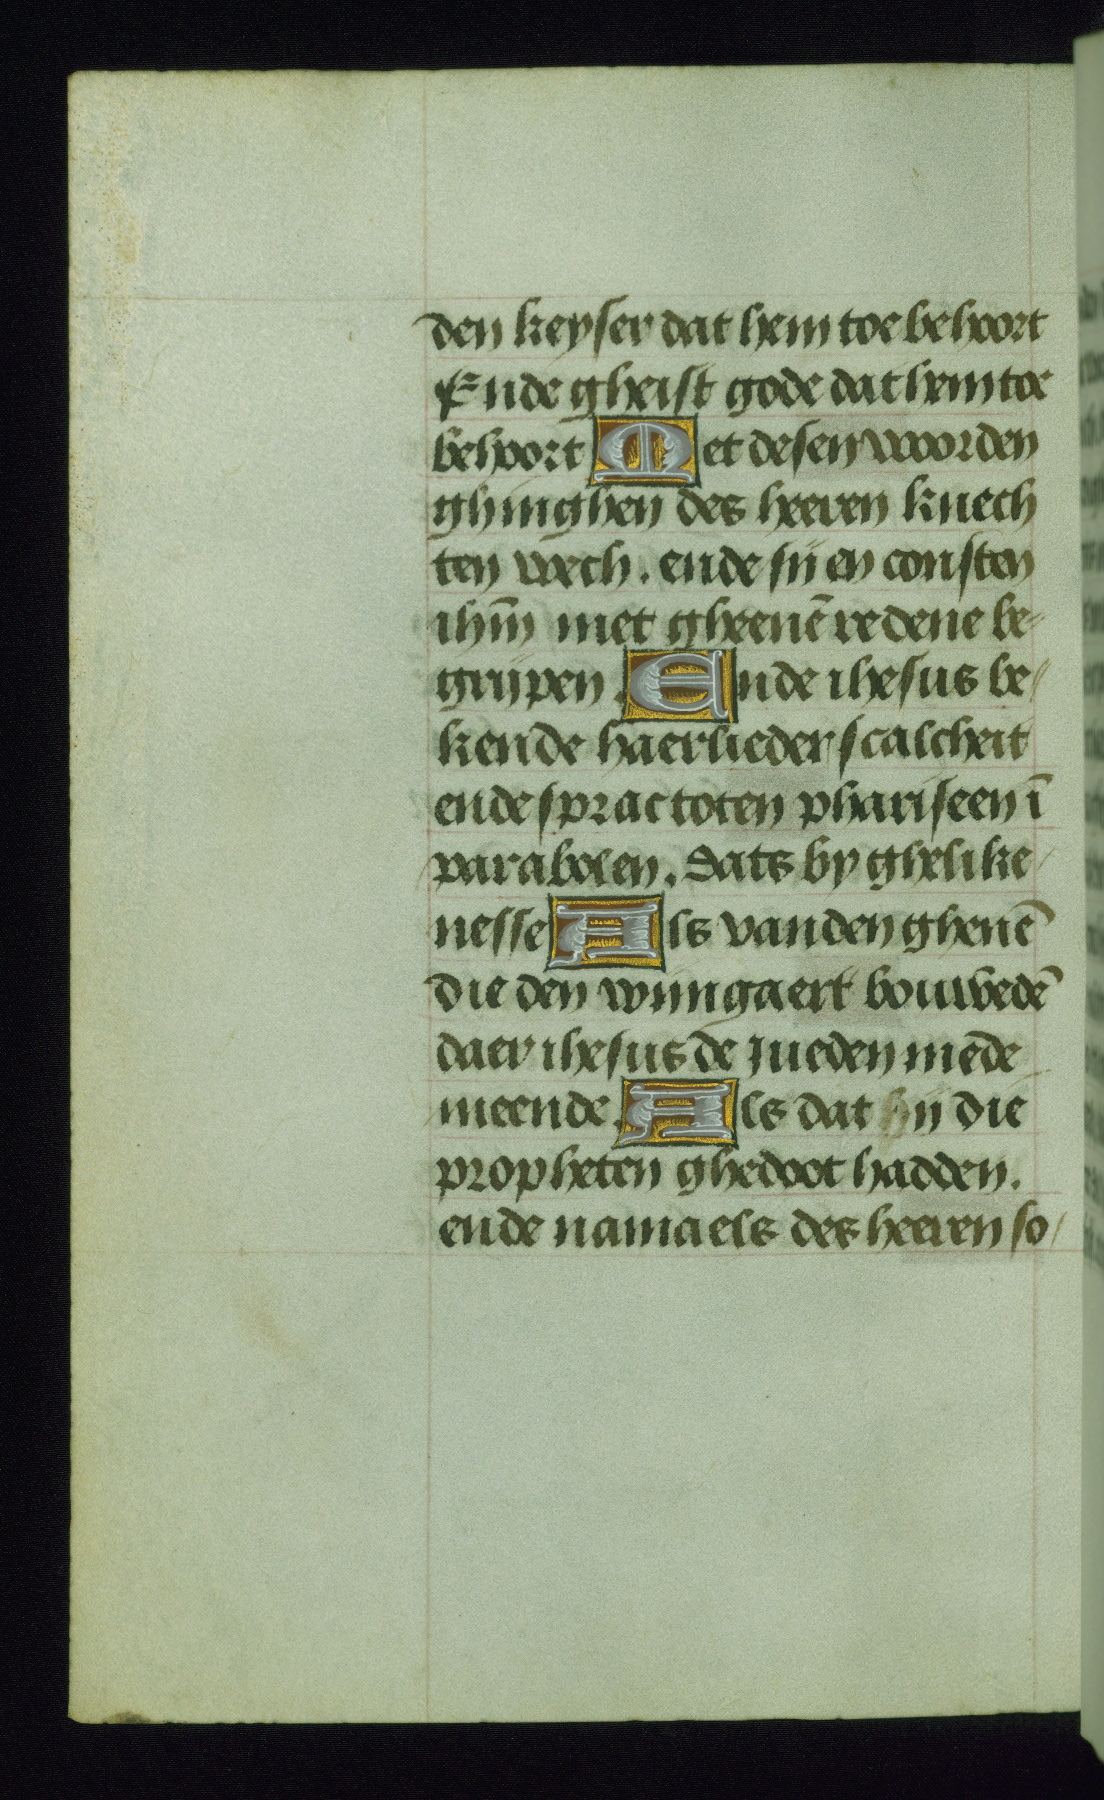 den keyser dat hem toe behoort
Ende gheift gode dat hem toe
behoort Met desen woorden
ghinghen des heeren knech
ten wech. ende sij en consten
ihm̄ niet gheenē redene be-
grijpen. Ende ihesus be/
kende haerlieder scalcheit
ende sprac toten phariseen ī
parabolen. Dats by ghelike/
nesse Als vanden ghenē
die den wijngaert bouwedē
daer ihesus de Jueden mede
meende. Als dat sij die
propheten ghedoot hadden.
ende namaels des heeren so/